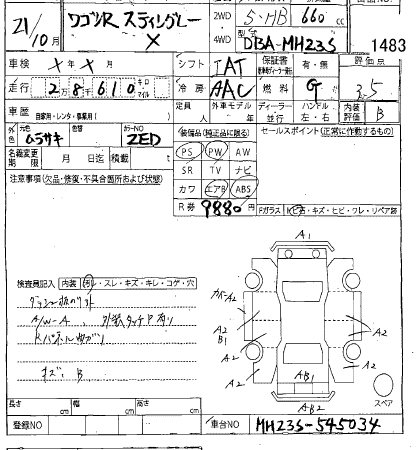 21/10月
ワゴンR スティングレー
X
2WD
4WD
5・HB
660 cc
型式
DBA-MH23S
1483
車検 × 年 × 月
シフト IAT
保証書 有・無
評価点
3.5
走行 2万8千610 キロ マイル
冷房 AAC
燃料 G
車歴 自家用・レンタ・事業用( )
定員 人
外車モデル 年
ディーラー 並行
ハンドル 左・右
内装評価 B
外色 元色 ムラサキ 色替
カラーNO ZED
装備品(純正品に限る)
セールスポイント(正常に作動するもの)
名義変更期限 月 日迄 積載 t
PS PW AW
SR TV ナビ
カワ エアB ABS
注意事項(欠品・修復・不具合箇所および状態)
R券 9880 円
Fガラス 飛石・キズ・ヒビ・ワレ・リペア跡
A1
検査員記入 内装 ・スレ・キズ・キレ・コゲ・穴
A/W-A
キズ B
A2
A2
A2
B1
A2
A2
A2
A2
AB1
AB2
スペア
長さ cm 幅 cm 高さ cm
登録NO
車台NO MH23S-545034